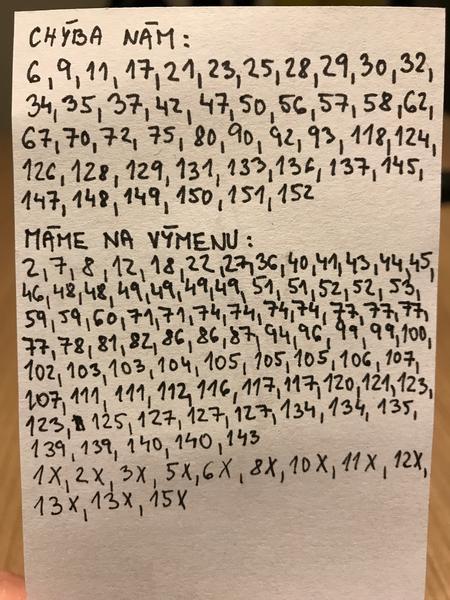 CHÝBA NÁM:
6, 9, 11, 17, 21, 23, 25, 28, 29, 30, 32,
34, 35, 37, 42, 47, 50, 56, 57, 58, 62,
67, 70, 72, 75, 80, 90, 92, 93, 118, 124,
126, 128, 129, 131, 133, 136, 137, 145,
147, 148, 149, 150, 151, 152
MÁME NA VÝMENU:
2, 7, 8, 12, 18, 22, 27, 36, 40, 41, 43, 44, 45,
46, 48, 48, 49, 49, 49, 49, 51, 51, 52, 52, 53,
59, 59, 60, 71, 71, 74, 74, 74, 74, 77, 77, 77,
77, 78, 81, 82, 86, 86, 87, 94, 96, 99, 99, 100,
102, 103, 103, 104, 105, 105, 105, 106, 107,
107, 111, 111, 112, 116, 117, 117, 120, 121, 123,
123, 125, 127, 127, 127, 134, 134, 135,
139, 139, 140, 140, 143
1X, 2X, 3X, 5X, 6X, 8X, 10X, 11X, 12X,
13X, 13X, 15X